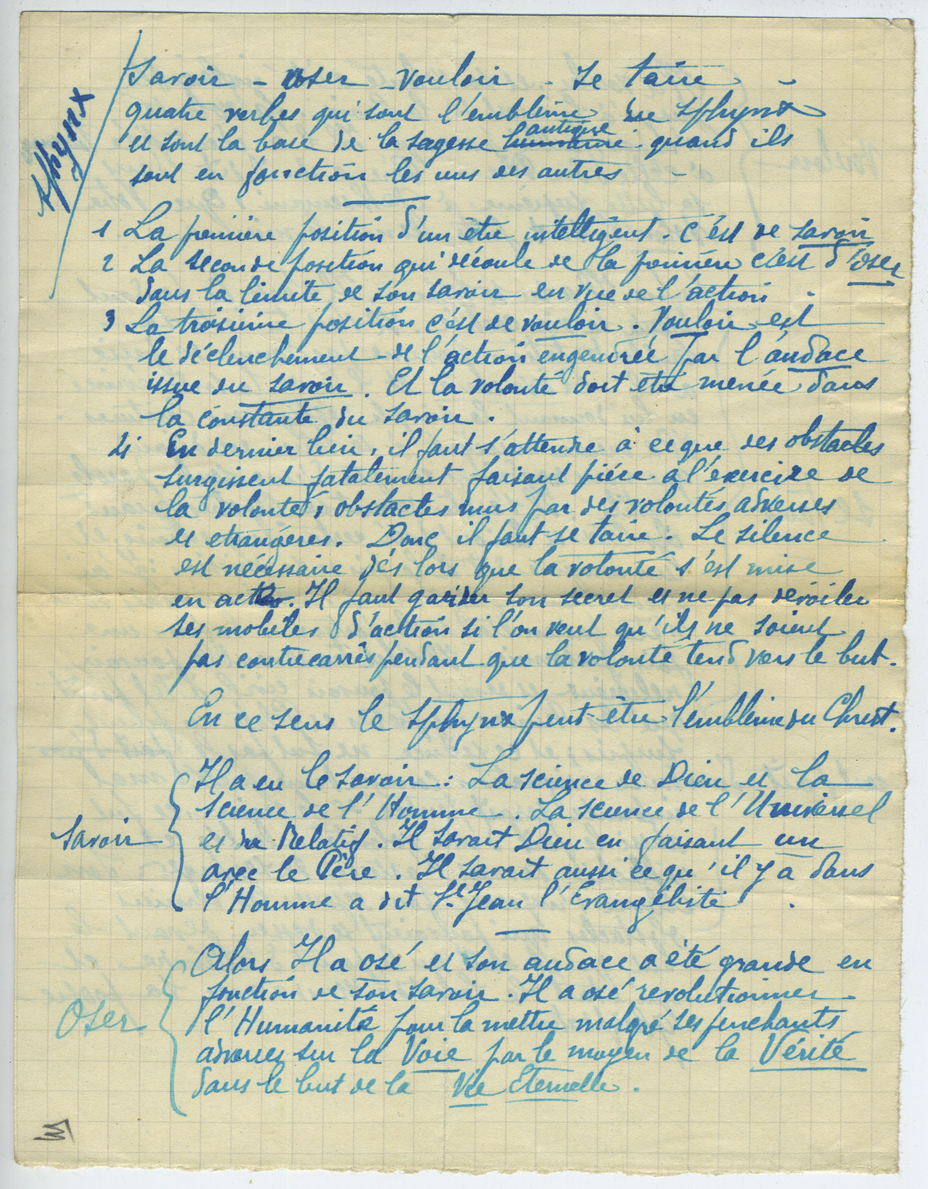 Sphynx
Savoir - Oser - Vouloir - Se taire -
quatre verbes qui sont l'emblème du Sphynx
et sont la base de la sagesse humaine antique quand ils
sont en fonction les uns des autres -
1 La première position d'un être intelligent. c'est de savoir
2 La seconde position qui découle de la première c'est d'oser
dans la limite de son savoir en vue de l'action.
3 La troisième position c'est de vouloir. Vouloir est
le déclenchement de l'action engendrée par l'audace
issue du savoir. Et la volonté doit être menée dans
la constante du savoir.
4 En dernier lieu, il faut s'attendre à ce que des obstacles
surgissent fatalement faisant pièce à l'exercice de
la volonté, obstacles mus par des volontés adverses
et étrangères. Donc il faut se taire. Le silence
est nécessaire dès lors que la volonté s'est mise
en acte. Il faut garder son secret et ne pas dévoiler
ses mobiles d'action si l'on veut qu'ils ne soient
pas contrecarrés pendant que la volonté tend vers le but.
En ce sens le Sphynx peut être l'emblème du Christ.
Savoir
Il a eu le savoir : La science de Dieu et la
science de l'Homme. La science de l'Universel
et du Relatif. Il savait Dieu en faisant un
avec le Père. Il savait aussi ce qu'il y a dans
l'Homme a dit St Jean l'Evangéliste.
Oser
Alors Il a osé et son audace a été grande en
fonction de son savoir. Il a osé révolutionner
l'Humanité pour la mettre malgré ses penchants
adverses sur la Voie par le moyen de la Vérité
dans le but de la Vie Eternelle.